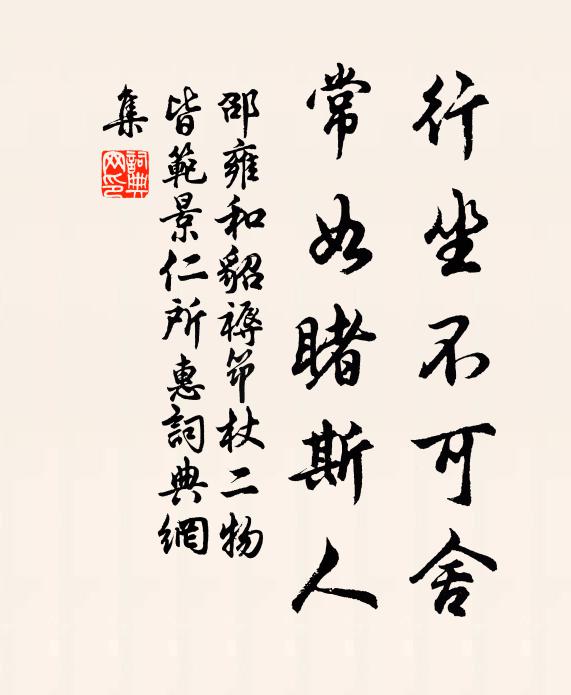 行坐不可舍
常如睹斯人
邵雍和貂褥筇杖二物
皆範景仁所惠詞典網
集
詞典网印